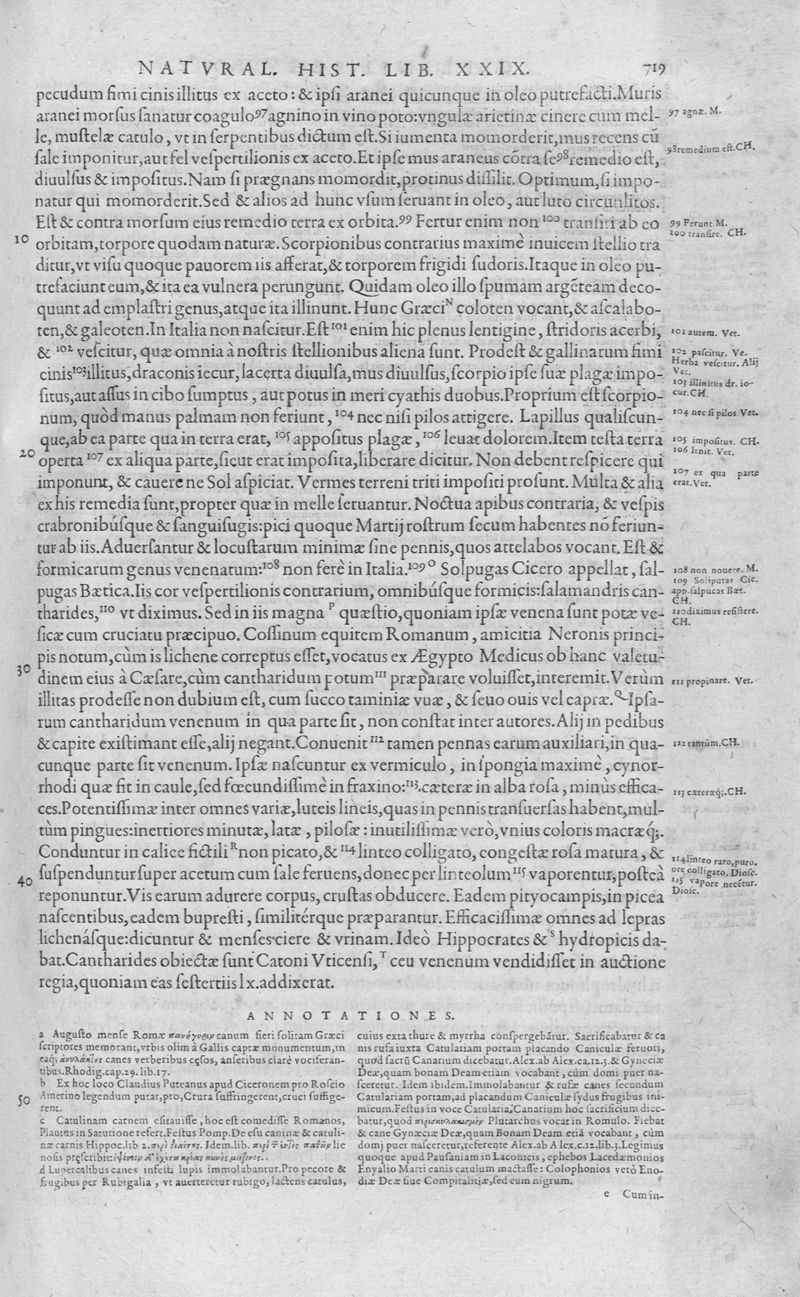 NATVRAL. HIST. LIB. XXIX. 719
pecudum fimi cinis illitus ex aceto: & ipſi aranei quicunque in oleo putrefacti. Muris
aranei morſus ſanatur coagulo⁹⁷agnino in vino poto: vngulæ arietinæ cinere cum mel-
le, muſtelæ catulo, vt in ſerpentibus dictum eſt. Si iumenta momorderit, mus recens cū
ſale imponitur, aut fel veſpertilionis ex aceto. Et ipſe mus araneus cōtra ſe⁹⁸remedio eſt,
diuulſus & impoſitus. Nam ſi prægnans momordit, protinus diſſilit. Optimum, ſi impo-
natur qui momorderit. Sed & alios ad hunc vſum ſeruant in oleo, aut luto circunlitos.
Eſt & contra morſum eius remedio terra ex orbita.⁹⁹ Fertur enim non ¹⁰⁰ tranſiri ab eo
10 orbitam, torpore quodam naturæ. Scorpionibus contrarius maximè inuicem ſtellio tra
ditur, vt viſu quoque pauorem iis afferat, & torporem frigidi ſudoris. Itaque in oleo pu-
trefaciunt eum, & ita ea vulnera perungunt. Quidam oleo illo ſpumam argēteam deco-
quunt ad emplaſtri genus, atque ita illinunt. Hunc Græciᴺ coloten vocant, & aſcalabo-
ten, & galeoten. In Italia non naſcitur. Eſt¹⁰¹ enim hic plenus lentigine, ſtridoris acerbi,
& ¹⁰² veſcitur, quæ omnia à noſtris ſtellionibus aliena ſunt. Prodeſt & gallinarum fimi
cinis¹⁰³illitus, draconis iecur, lacerta diuulſa, mus diuulſus, ſcorpio ipſe ſuæ plagæ impo-
ſitus, aut aſſus in cibo ſumptus, aut potus in meri cyathis duobus. Proprium eſt ſcorpio-
num, quòd manus palmam non feriunt, ¹⁰⁴ nec niſi pilos attigere. Lapillus qualiſcun-
que, ab ea parte qua in terra erat, ¹⁰⁵ appoſitus plagæ, ¹⁰⁶ leuat dolorem. Item teſta terra
20 operta ¹⁰⁷ ex aliqua parte, ſicut erat impoſita, liberare dicitur. Non debent reſpicere qui
imponunt, & cauere ne Sol aſpiciat. Vermes terreni triti impoſiti proſunt. Multa & alia
ex his remedia ſunt, propter quæ in melle ſeruantur. Noctua apibus contraria, & veſpis
crabronibúſque & ſanguiſugis: pici quoque Martij roſtrum ſecum habentes nō feriun-
tur ab iis. Aduerſantur & locuſtarum minimæ ſine pennis, quos attelabos vocant. Eſt &
formicarum genus venenatum: ¹⁰⁸ non ferè in Italia. ¹⁰⁹ ᴼ Solpugas Cicero appellat, ſal-
pugas Bætica. Iis cor veſpertilionis contrarium, omnibúſque formicis: ſalamandris can-
tharides, ¹¹⁰ vt diximus. Sed in iis magna ᴾ quæſtio, quoniam ipſæ venena ſunt potæ ve-
ſicæ cum cruciatu præcipuo. Coſſinum equitem Romanum, amicitia Neronis princi-
pis notum, cùm is lichene correptus eſſet, vocatus ex Ægypto Medicus ob hanc valetu-
30 dinem eius à Cæſare, cùm cantharidum potum¹¹¹ præparare voluiſſet, interemit. Verùm
illitas prodeſſe non dubium eſt, cum ſucco taminiæ vuæ, & ſeuo ouis vel capræ. Q Ipſa-
rum cantharidum venenum in qua parte ſit, non conſtat inter autores. Alij in pedibus
& capite exiſtimant eſſe, alij negant. Conuenit ¹¹² tamen pennas earum auxiliari, in qua-
cunque parte ſit venenum. Ipſæ naſcuntur ex vermiculo, in ſpongia maximè, cynor-
rhodi quæ fit in caule, ſed fœcundiſſimè in fraxino: ¹¹³.cæteræ in alba roſa, minùs effica-
ces. Potentiſſimæ inter omnes variæ, luteis lineis, quas in pennis tranſuerſas habent, mul-
tùm pingues: inertiores minutæ, latæ, piloſæ: inutiliſſimæ verò, vnius coloris macræq;.
Conduntur in calice fictili ᴿnon picato, & ¹¹⁴ linteo colligato, congeſtæ roſa matura, &
40 ſuſpenduntur ſuper acetum cum ſale feruens, donec per linteolum¹¹⁵ vaporentur, poſteà
reponuntur. Vis earum adurere corpus, cruſtas obducere. Eadem pityocampis, in picea
naſcentibus, eadem bupreſti, ſimilitérque præparantur. Efficaciſſimæ omnes ad lepras
lichenáſque: dicuntur & menſes ciere & vrinam. Ideò Hippocrates & ˢ hydropicis da-
bat. Cantharides obiectæ ſunt Catoni Vticenſi, ᵀ ceu venenum vendidiſſet in auctione
regia, quoniam eas ſeſtertiis lx. addixerat.
97 agnæ. M.
98 remedium eſt. CH.
99 Ferunt M.
100 tranſire. CH.
101 autem. Vet.
102 paſcitur. Ve.
Herba veſcitur. Alij
Vet.
103 illinitus dr. io-
cur. CH.
104 nec ſi pilos. Vet.
105 impoſitus. CH.
106 lenit. Vet.
107 ex qua parte
erat. Vet.
108 non nouere. M.
109 Solipugas Cic.
app. ſalpucas Bæt.
CH.
110 diximus reſiſtere.
CH.
111 propinare. Vet.
112 tantùm. CH.
113 cæteræq;. CH.
114 linteo raro, puro,
ore colligato. Dioſc.
115 vapore necētur.
Dioſc.
ANNOTATIONES.
a Auguſto menſe Romæ canum fieri ſolitam Græci
ſcriptores memorant, vrbis olim à Gallis captæ monumentum, in
eaq; canes verberibus cęſos, anſeribus clarè vociferan-
tibus. Rhodig. cap. 29. lib. 17.
b Ex hoc loco Claudius Puteanus apud Ciceronem pro Roſcio
50 Amerino legendum putat, pro, Crura ſuffringerent, cruci ſuffige-
rent.
c Catulinam carnem eſitauiſſe, hoc eſt comediſſe Romanos,
Plautus in Saturione refert. Feſtus Pomp. De eſu caninæ & catuli-
næ carnis Hippoc. lib 2. Idem. lib. lie
noſis pręſcribit:
d Lupercalibus canes infeſti lupis immolabantur. Pro pecore &
frugibus per Rubigalia, vt auerteretur rubigo, lactens catulus,
cuius exta thure & myrrha conſpergebātur. Sacrificabatur & ca
nis rufa iuxta Catulariam portam placando Caniculæ feruori,
quod ſacrū Canarium dicebatur. Alex. ab Alex. ca. 12. 3. & Gyneciæ
Deæ, quam bonam Deam etiam vocabant, cùm domi puer na-
ſceretur. Idem ibidem. Immolabantur & rufæ canes ſecundum
Catulariam portam, ad placandum Caniculæ ſydus frugibus ini-
micum. Feſtus in voce Catularia; Canarium hoc ſacrificium dice-
batur, quod Plutarchus vocat in Romulo. Fiebat
& cane Gynæciæ Deæ, quam Bonam Deam etiā vocabant, cùm
domi puer naſceretur, referente Alex. ab Alex. ca. 12. lib. 3. Legimus
quoque apud Pauſaniam in Laconicis, ephebos Lacedæmonios
Enyalio Marti canis catulum mactaſſe: Colophonios verò Eno-
diæ Deæ ſiue Compitalitiæ, ſed eum nigrum.
e Cum in-